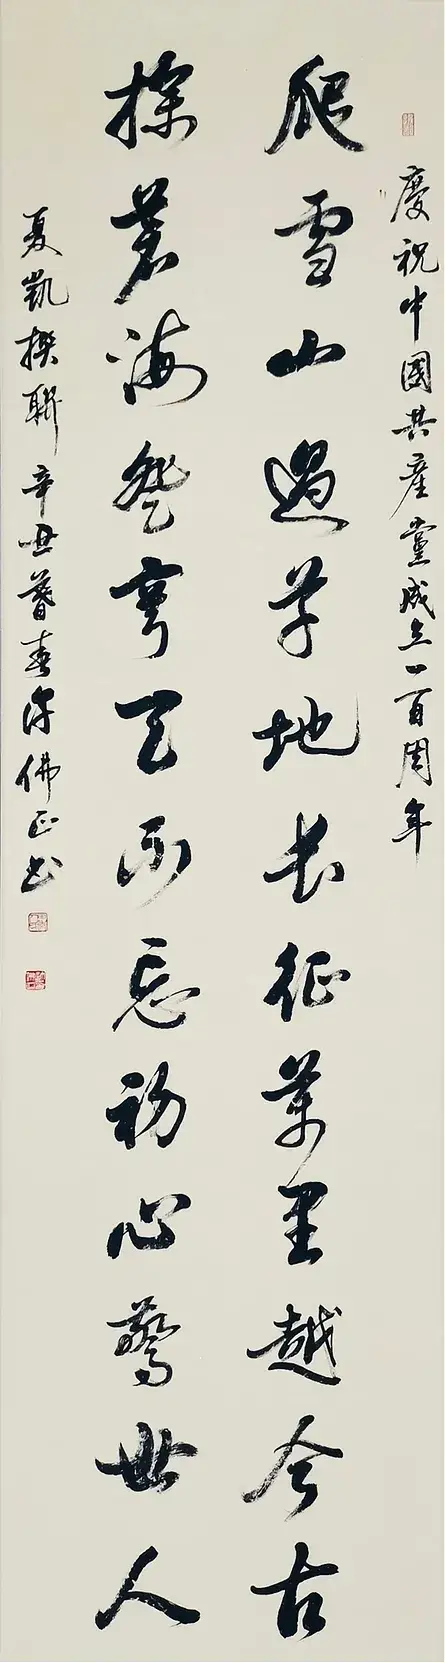 慶祝中國共產黨成立一百周年
爬雪山過草地長征萬里越今古
探蒼海登穹天不忘初心驚世人
夏凱撰聯 辛丑暮春許佛正書